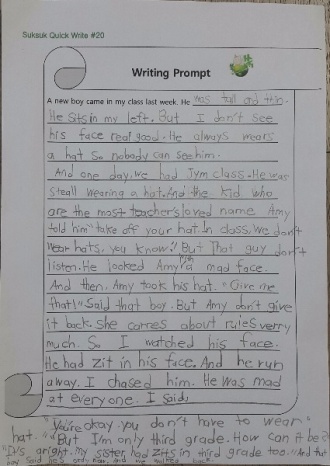 Suksuk Quick Write #20
Writing Prompt
A new boy came in my class last week. He was tall and thin.
He sits in my left. But I don't see
his face real good. He always wears
a hat So nobody can see him.
And one day, we had Jym class. He was
steall wearing a hat. And the kid who
are the most teacher's loved name Amy
told him "take off your hat In class, We don't
wear hats, you know!" But That guy don't
listen. He looked Amy with a mad face.
And then. Amy took his hat. "Give me
that!" Said that boy. But Amy don't give
it back. She carres about rules verry
much. So I watched his face.
He had zit in his face. And he run
away. I chased him. He was mad
at every one. I said,
"You're okay. you don't have to wear
hat." "But I'm only third grade. How can it be?
"It's aright. my sister had zits in third grade too." And that
boy said he's